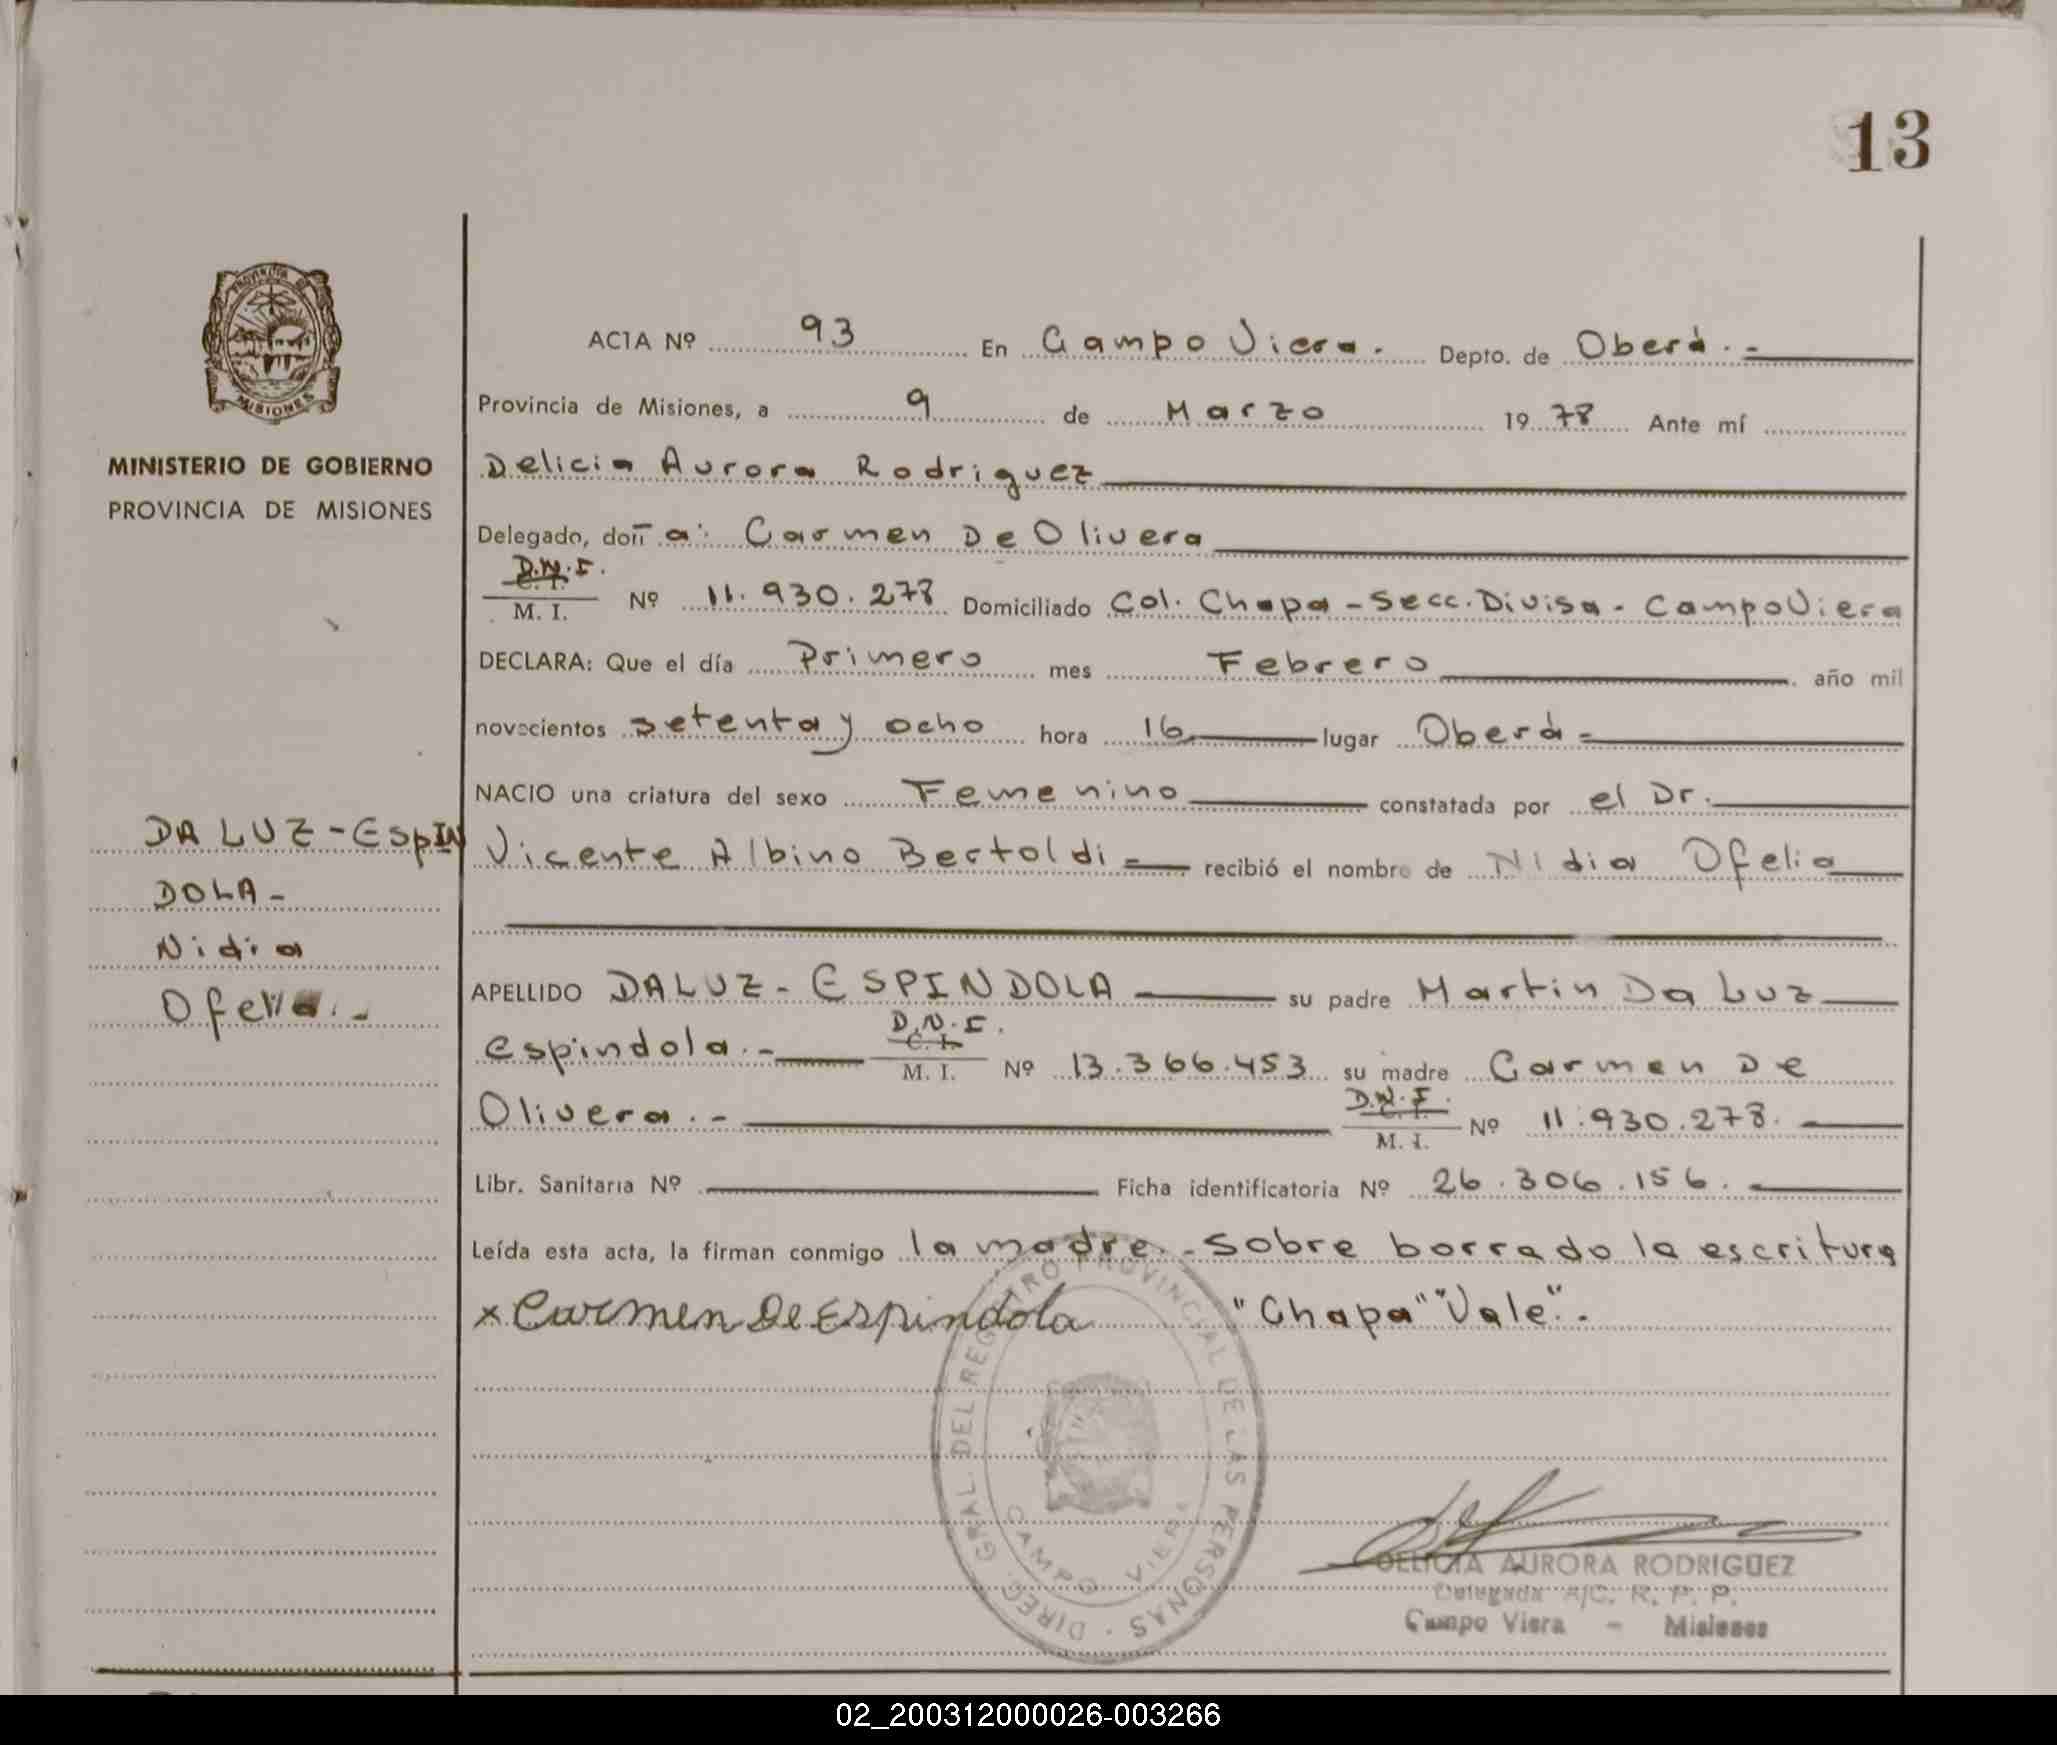 13
PROVINCIA DE
MISIONES
MINISTERIO DE GOBIERNO
PROVINCIA DE MISIONES
DA LUZ - ESpIN
DOLA -
Nidia
Ofelia. -
ACTA Nº 93 En Campo Viera. Depto. de Oberá. -
Provincia de Misiones, a 9 de Marzo 19 78 Ante mí
Delicia Aurora Rodriguez
Delegado, doña: Carmen De Olivera
D.N.I.
C. I.
M. I. Nº 11.930.278 Domiciliado Col. Chapa - Secc. Divisa - Campo Viera
DECLARA: Que el día Primero mes Febrero año mil
novecientos setenta y ocho hora 16 lugar Oberá -
NACIO una criatura del sexo Femenino constatada por el Dr.
Vicente Albino Bertoldi - recibió el nombre de Nidia Ofelia
APELLIDO DA LUZ - ESPINDOLA su padre Martin Da Luz
espindola. - D.N.I. C. I. M. I. Nº 13.366.453 su madre Carmen De
Olivera. - D.N.I. C. I. M. I. Nº 11.930.278.
Libr. Sanitaria Nº Ficha identificatoria Nº 26.306.156.
Leída esta acta, la firman conmigo la madre. - Sobre borrado la escritura
x Carmen De Espindola "Chapa" "Vale". -
DIREC. GRAL. DEL REGISTRO PROVINCIAL DE LAS PERSONAS ·
CAMPO VIERA
DELICIA AURORA RODRIGUEZ
Delegada A/C. R. P. P.
Campo Viera - Misiones
02_200312000026-003266